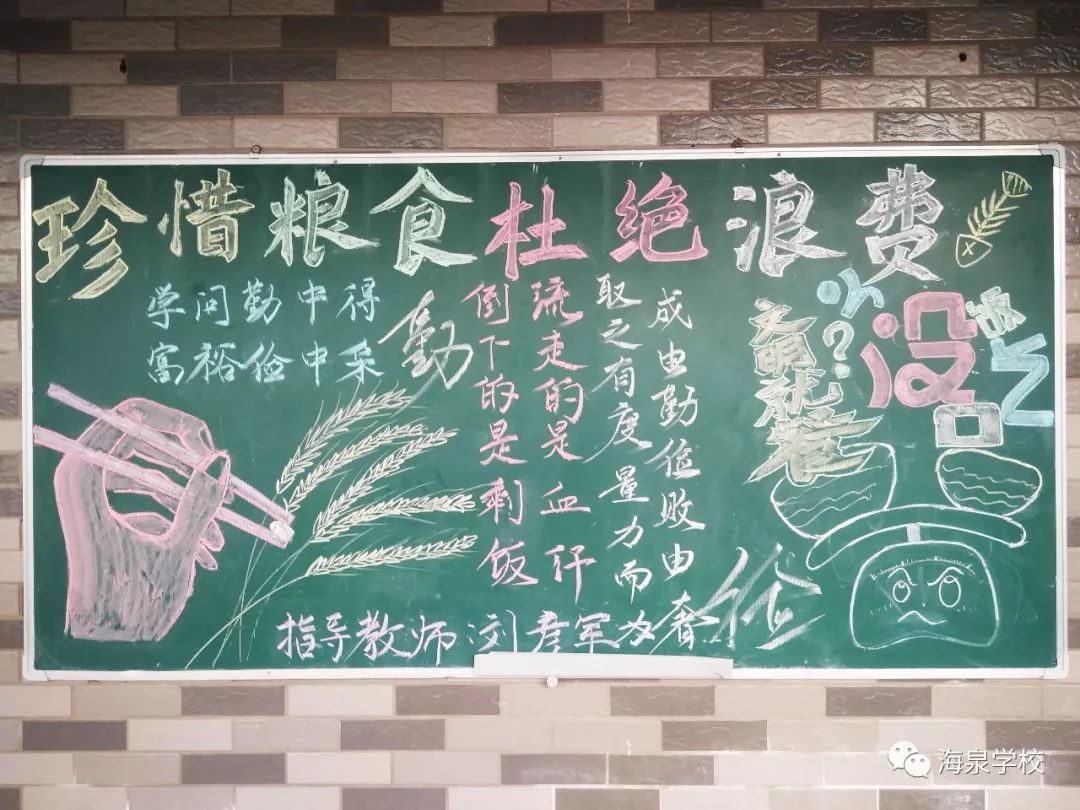 珍惜粮食杜绝浪费
学问勤中得
富裕俭中采
勤
倒下的是剩饭
流走的是血汗
取之有度 量力而为
成由勤俭败由奢
俭
文明就餐
?
?
没
指导教师:刘彦军
海泉学校